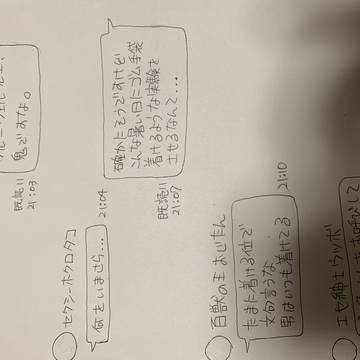 鬼ですよな。
既読11
21:03
セクシーホクロタコ
何をいまさら…
21:04
確かにそうですけど
こんな暑い日にゴム手袋
着けるような実験を
させるなんて…
既読11
21:07
百獣の王おじたん
たまに着ける位で
文句言うな
男はいつも着けてる
21:10
エセ紳士ウツボ